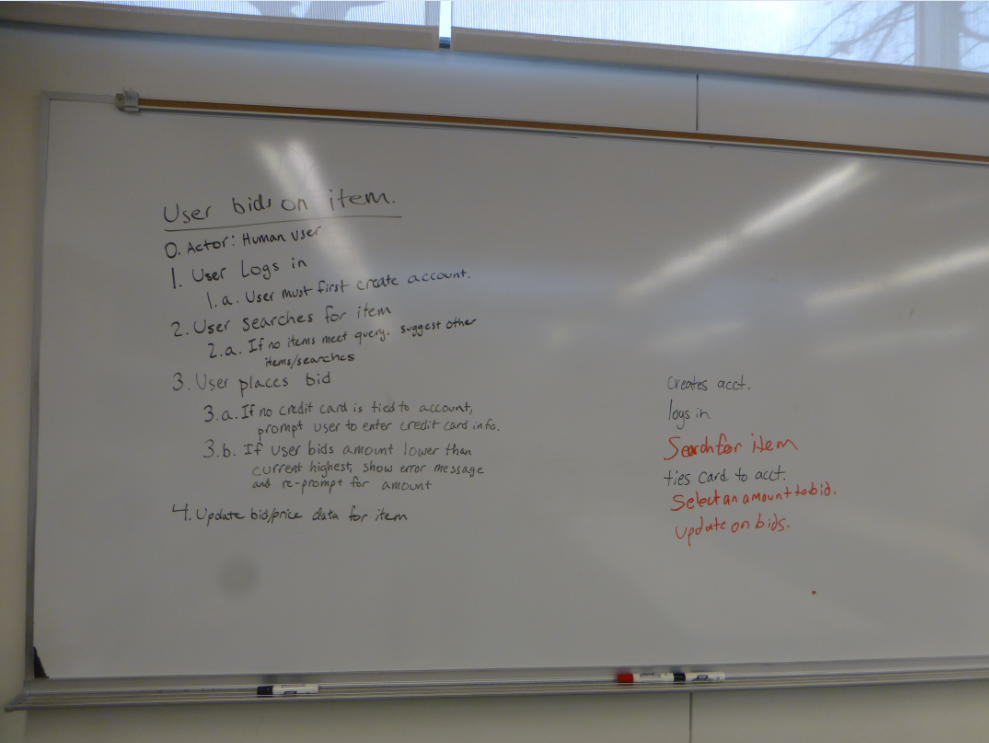 User bids on item.
0. Actor: Human user
1. User Logs in
1.a. User must first create account.
2. User searches for item
2.a. If no items meet query, suggest other
items/searches
3. User places bid
3.a. If no credit card is tied to account,
prompt user to enter credit card info.
3.b. If user bids amount lower than
current highest, show error message
and re-prompt for amount
4. Update bid/price data for item
Creates acct.
logs in
Search for item
ties card to acct.
Select an amount to bid.
update on bids.